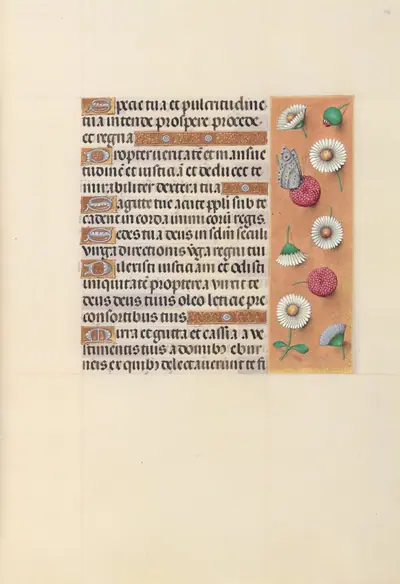 Specie tua et pulcritudine
tua intende prospere procede
et regna
Propter veritatē et mansue
tudinē et iusticiā et deduc te
mirabiliter dextera tua
Sagitte tue acute ppli sub te
cadent in corda inimicorū regis.
Sedes tua deus in sclm seculi
virga directionis v̄ga regni tui
Dilexisti iusticiam et odisti
iniquitatē propterea vnxit te
deus deus tuus oleo leticie pre
consortibus tuis.
Mirra et gutta et cassia a ve
stimentis tuis a domibȝ ebur
neis ex quibȝ delectauerunt te fi